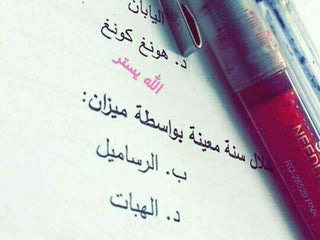 اليابان
د. هونغ كونغ
الله يستر
خلال سنة معينة بواسطة ميزان:
ب. الرساميل
د. الهبات
NEEDL
RQ-28520 PNK